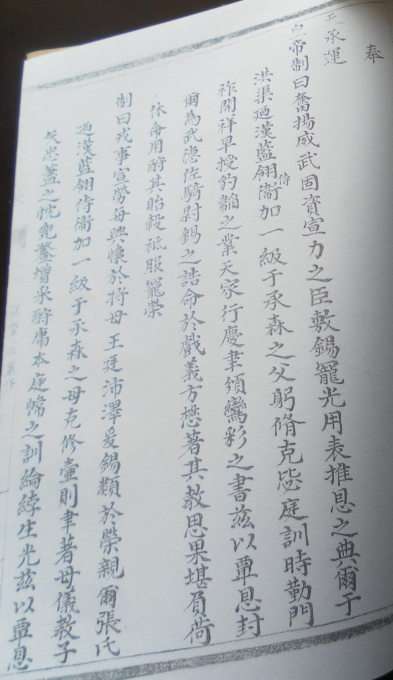 奉
天承運
皇帝制曰奮揚威武固資宣力之臣敷錫寵光用表推恩之典爾于
洪渠迺漢藍翎侍衞加一級于承森之父躬脩克毖庭訓時勤門
祚開祥早授豹韜之業天家行慶聿頒鸞彩之書茲以覃恩封
爾為武德佐騎尉錫之誥命於戲義方懋著其教思果堪負荷
休命用酧其詒穀祗服寵榮
制曰戎事宣勞每興懷於將母王廷沛澤爰錫類於榮親爾張氏
迺漢藍翎侍衞加一級于承森之母克修壼則聿著母儀教子
矢忠藎之忱兜鍪增采酧庸本庭幃之訓綸綍生光茲以覃恩